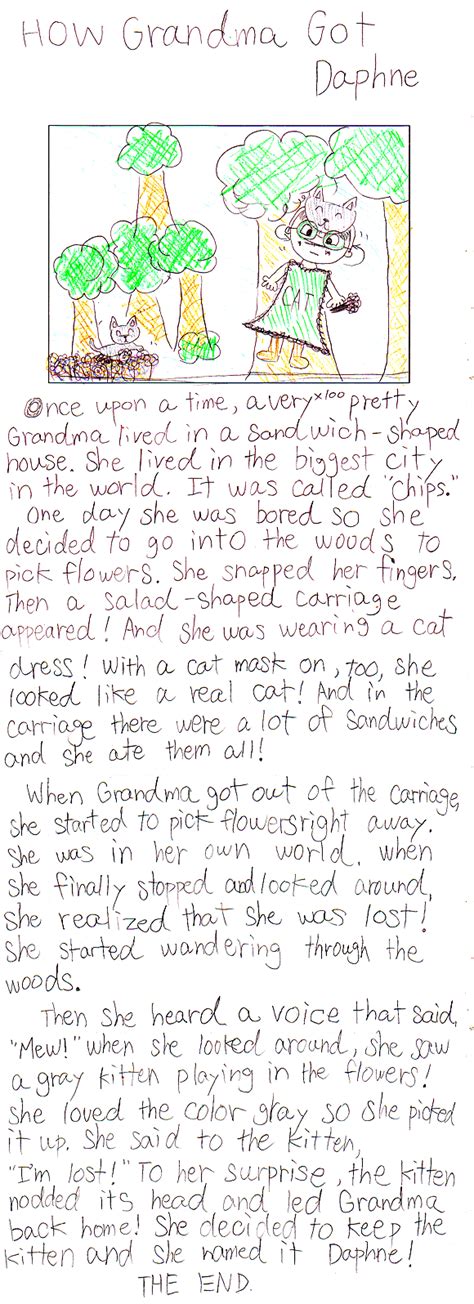 How Grandma Got
Daphne
CAT
Once upon a time, a very x100 pretty
Grandma lived in a sandwich-shaped
house. She lived in the biggest city
in the world. It was called "Chips."
One day she was bored so she
decided to go into the woods to
pick flowers. She snapped her fingers.
Then a salad-shaped carriage
appeared! And she was wearing a cat
dress! With a cat mask on, too, she
looked like a real cat! And in the
carriage there were a lot of sandwiches
and she ate them all!
When Grandma got out of the carriage,
she started to pick flowers right away.
She was in her own world. When
she finally stopped and looked around,
she realized that she was lost!
She started wandering through the
woods.
Then she heard a voice that said,
"Mew!" when she looked around, she saw
a gray kitten playing in the flowers!
She loved the color gray so she picked
it up. She said to the kitten,
"I'm lost!" To her surprise, the kitten
nodded its head and led Grandma
back home! She decided to keep the
kitten and she named it Daphne!
THE END.